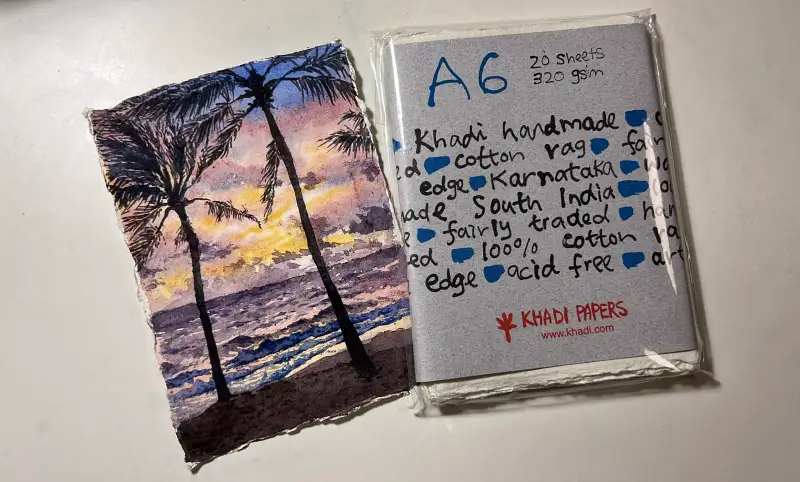 A6
20 sheets
320 gsm
Khadi handmade
ed cotton rag
edge Karnataka
South India
fairly traded
ed 100% cotton
edge acid free
KHADI PAPERS
www.khadi.com